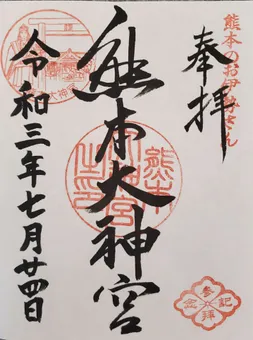 熊本のお伊勢さん
奉拝
参拝記念
熊本大神宮
熊本
大神宮
之印
大神宮
令和三年七月廿四日